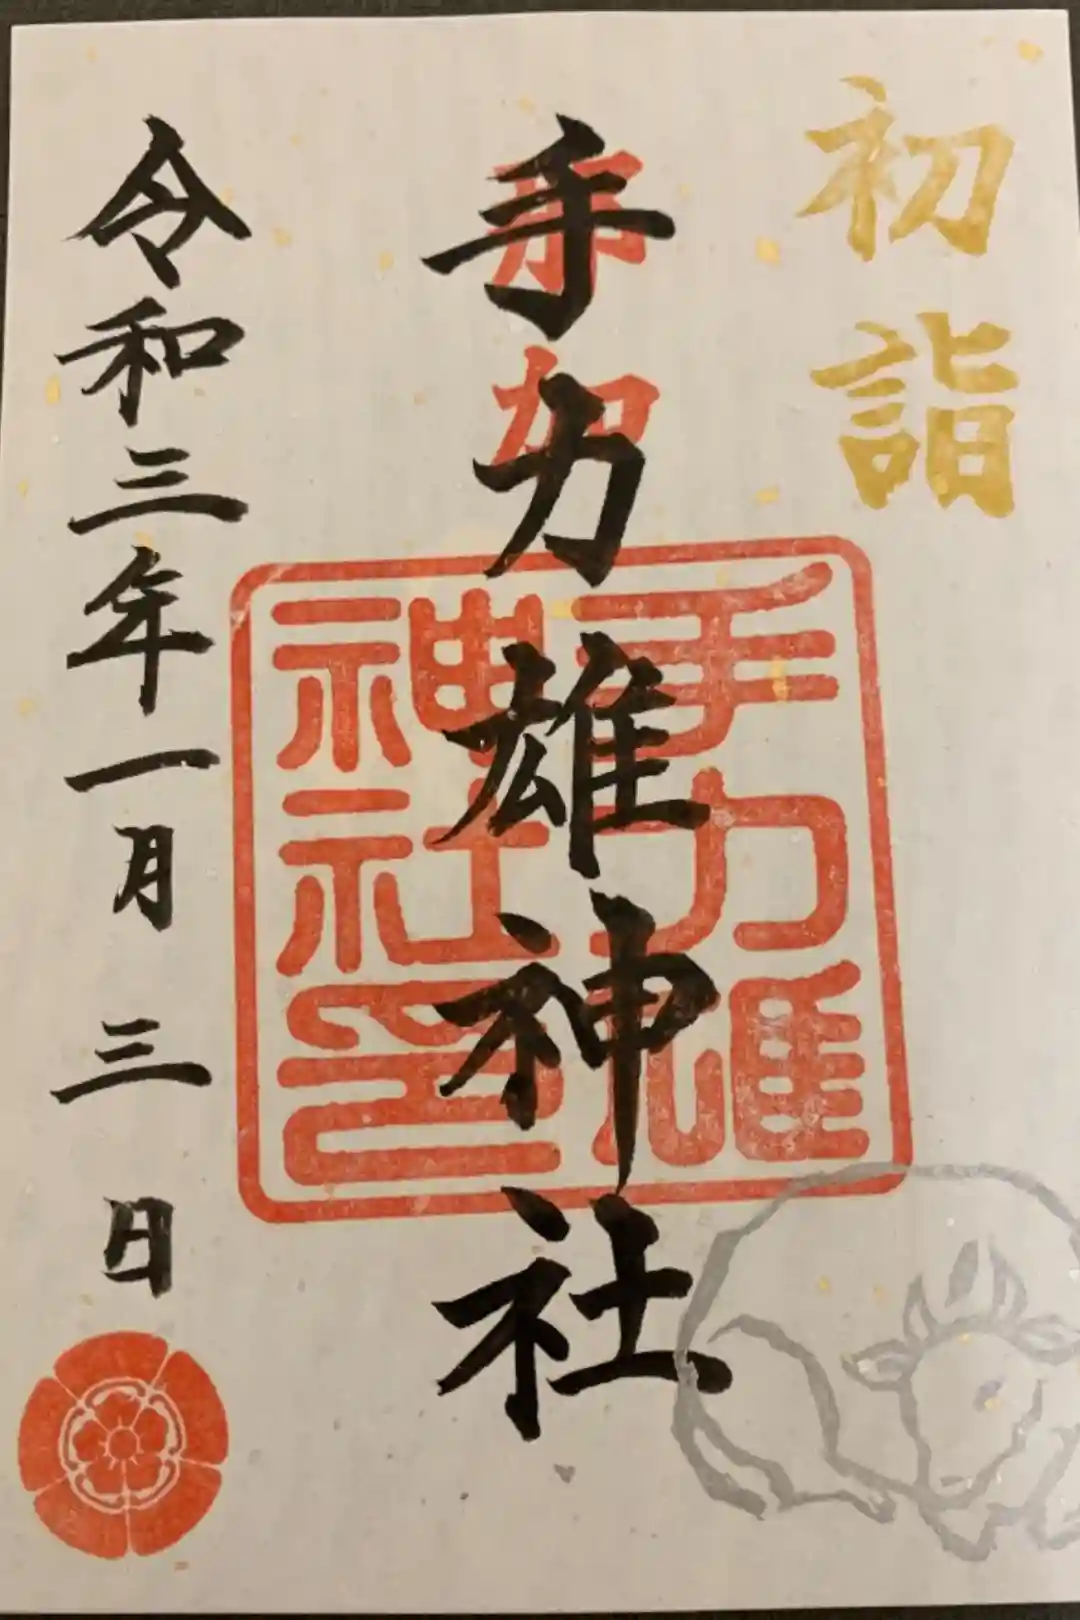 初詣
手力雄神社
那加
手力雄
神社印
令和三年一月三日